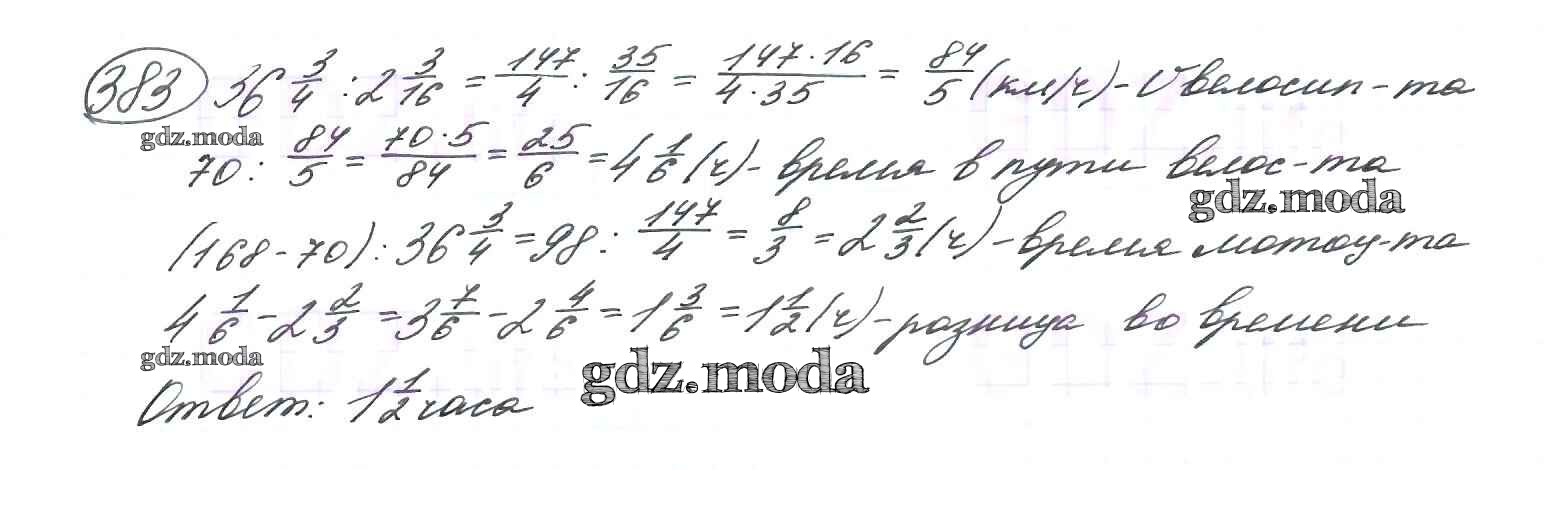 383 36 3/4 : 2 3/16 = 147/4 : 35/16 = 147·16/4·35 = 84/5 (км/ч) - V велосип-та
gdz.moda
70 : 84/5 = 70·5/84 = 25/6 = 4 1/6 (ч) - время в пути велос-та
gdz.moda
(168-70) : 36 3/4 = 98 : 147/4 = 8/3 = 2 2/3 (ч) - время мотоц-та
4 1/6 - 2 2/3 = 3 7/6 - 2 4/6 = 1 3/6 = 1 1/2 (ч) - разница во времени
gdz.moda
gdz.moda
Ответ: 1 1/2 часа